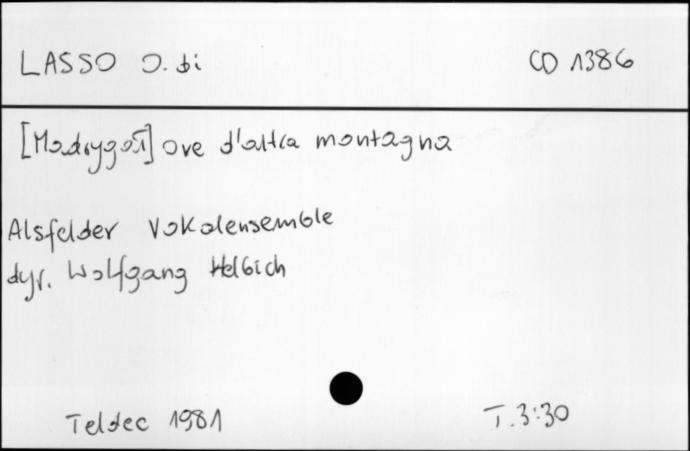 LASSO O. di CD 1386
[Madrygał] ove d'altra montagna
Alsfelder Vokalensemble
dyr. Wolfgang Helbich
Teldec 1981 T. 3:30